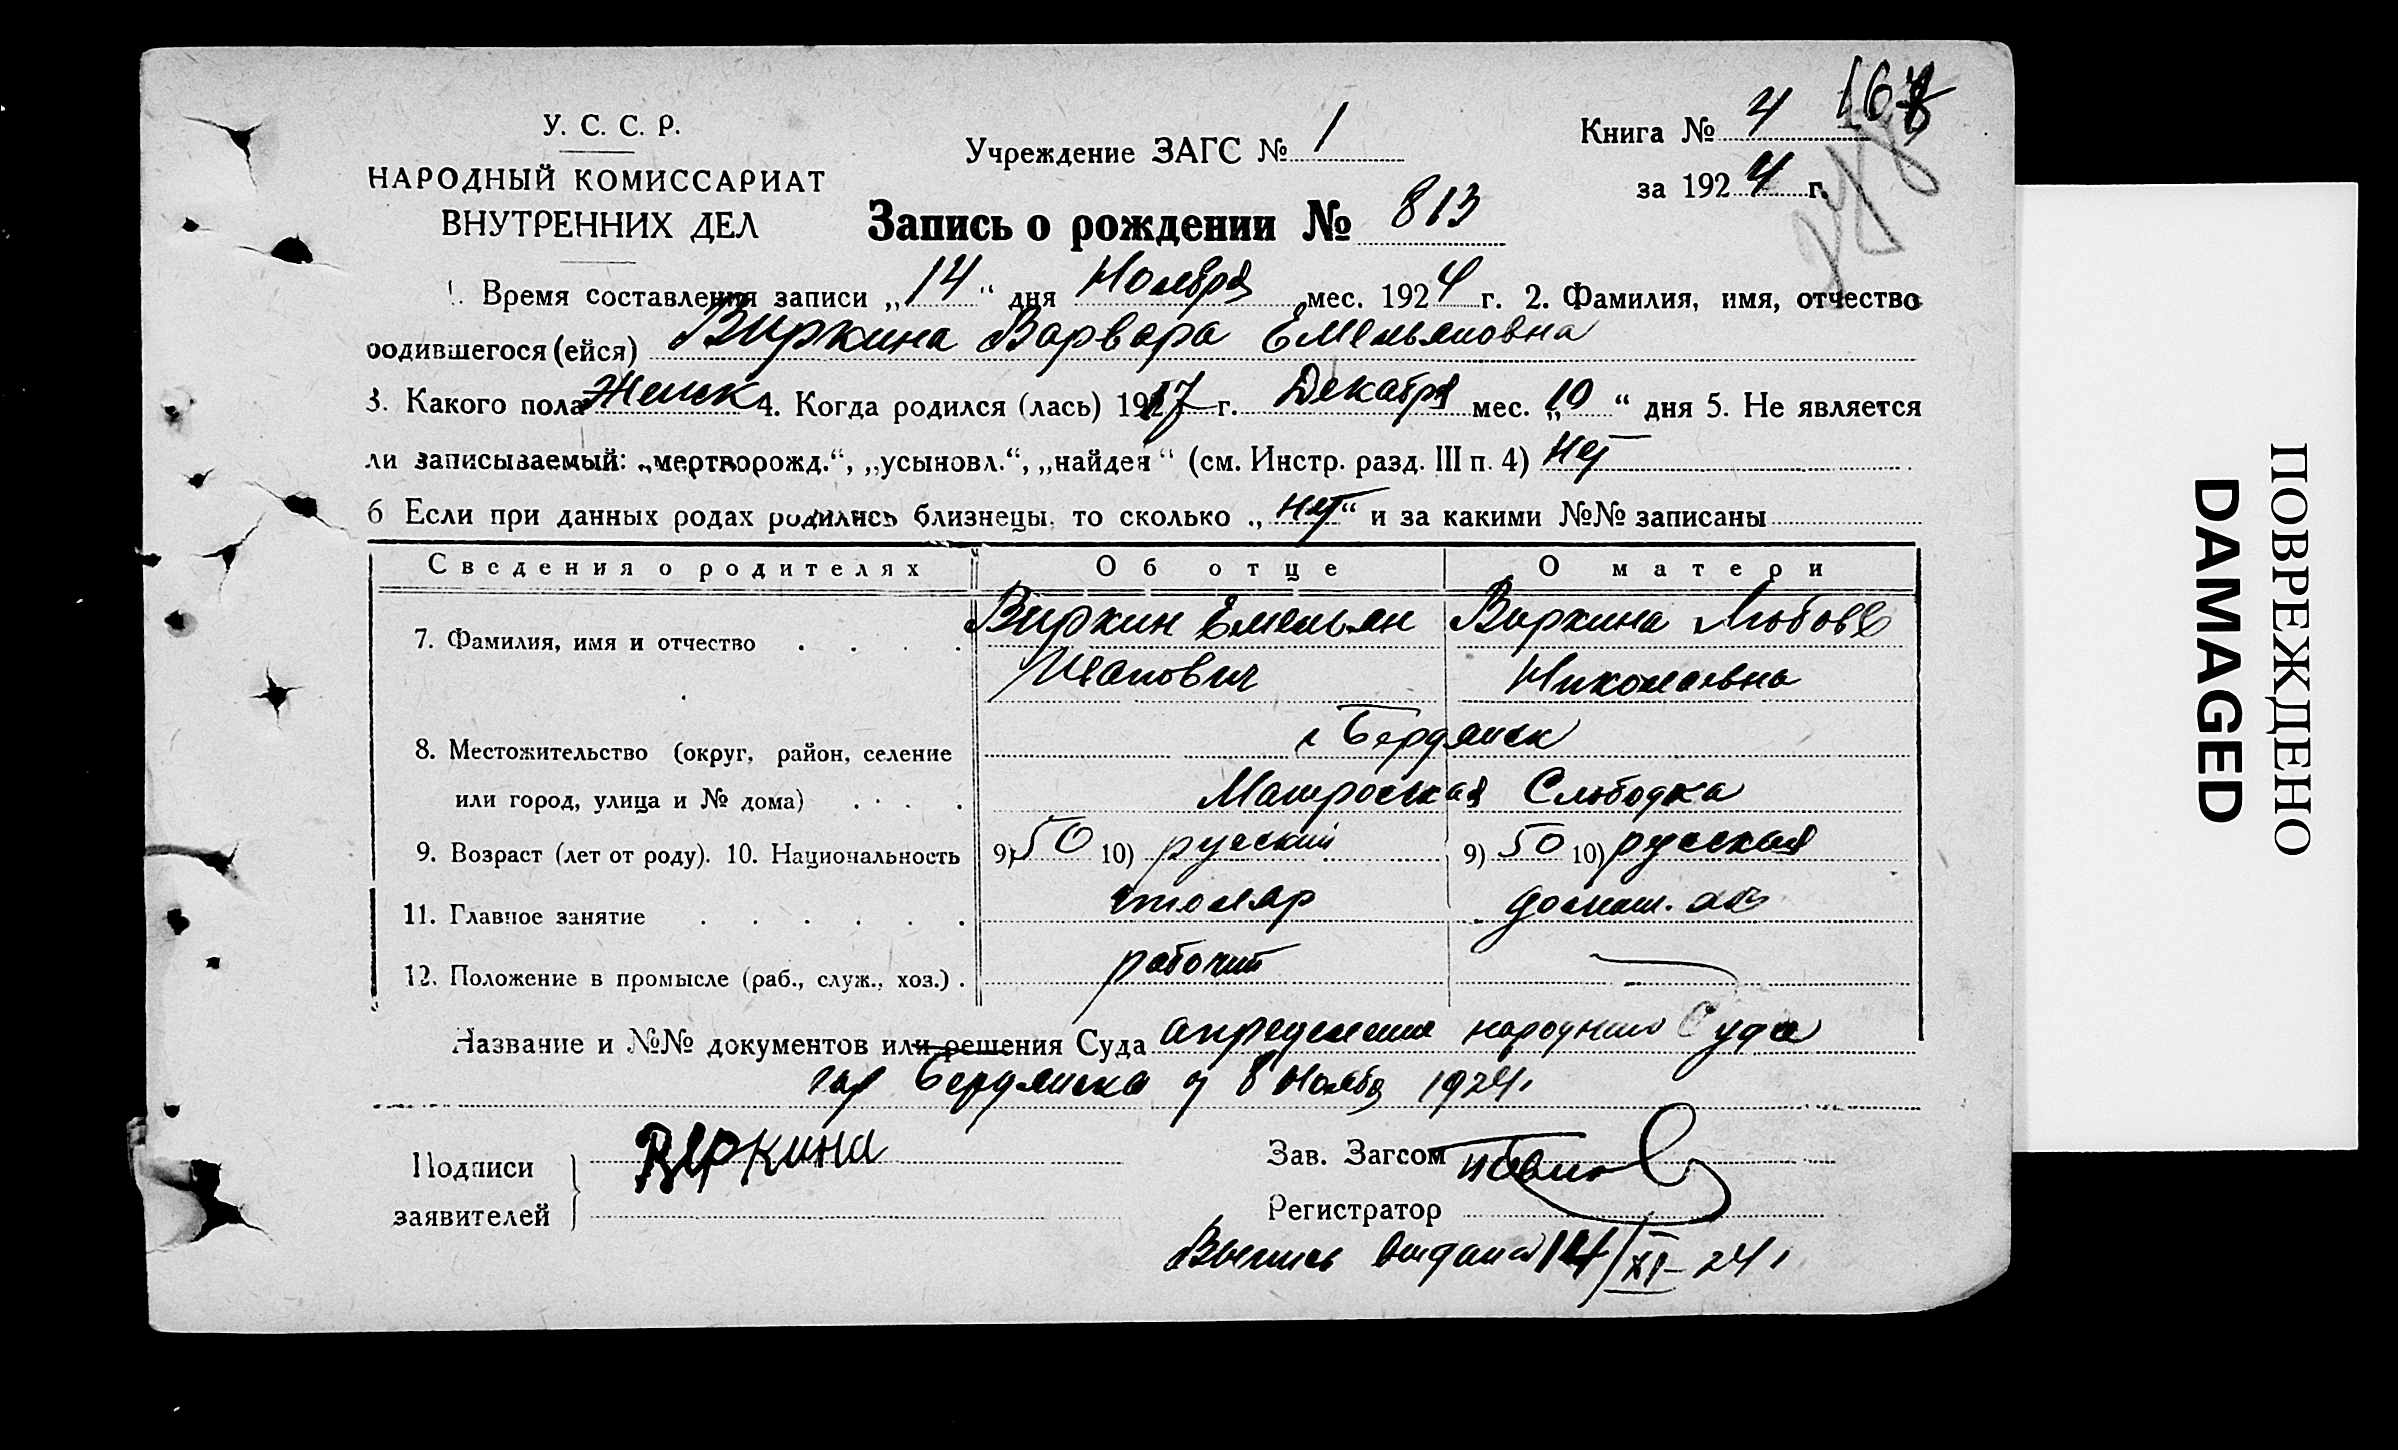 У. С. С. Р.
НАРОДНЫЙ КОМИССАРИАТ
ВНУТРЕННИХ ДЕЛ
Учреждение ЗАГС № 1
Книга № 4
за 1924 г.
Запись о рождении № 813
1. Время составления записи „14“ дня Ноября мес. 1924 г. 2. Фамилия, имя, отчество
родившегося (ейся) Виркина Варвара Емельяновна
3. Какого пола Женск 4. Когда родился (лась) 1917 г. Декабря мес. „10“ дня 5. Не является
ли записываемый: „мертворожд.“, „усыновл.“, „найден“ (см. Инстр. разд. III п. 4) нет
6 Если при данных родах родились близнецы, то сколько „нет“ и за какими №№ записаны
Сведения о родителях Об отце О матери
7. Фамилия, имя и отчество Виркин Емельян Виркина Любовь
Иванович Николаевна
8. Местожительство (округ, район, селение г Бердянск
или город, улица и № дома) Матроская Слободка
9. Возраст (лет от роду). 10. Национальность 9) 50 10) руский 9) 50 10) руская
11. Главное занятие столяр домаш. хоз
12. Положение в промысле (раб., служ., хоз.) рабочий
Название и №№ документов или решения Суда определение народного Суда
гор Бердянска от 8 Ноября 1924 г
Подписи
заявителей
Виркина
Зав. Загсом
Регистратор
Выпись выдана 14/XI-24 г
ПОВРЕЖДЕНО
DAMAGED